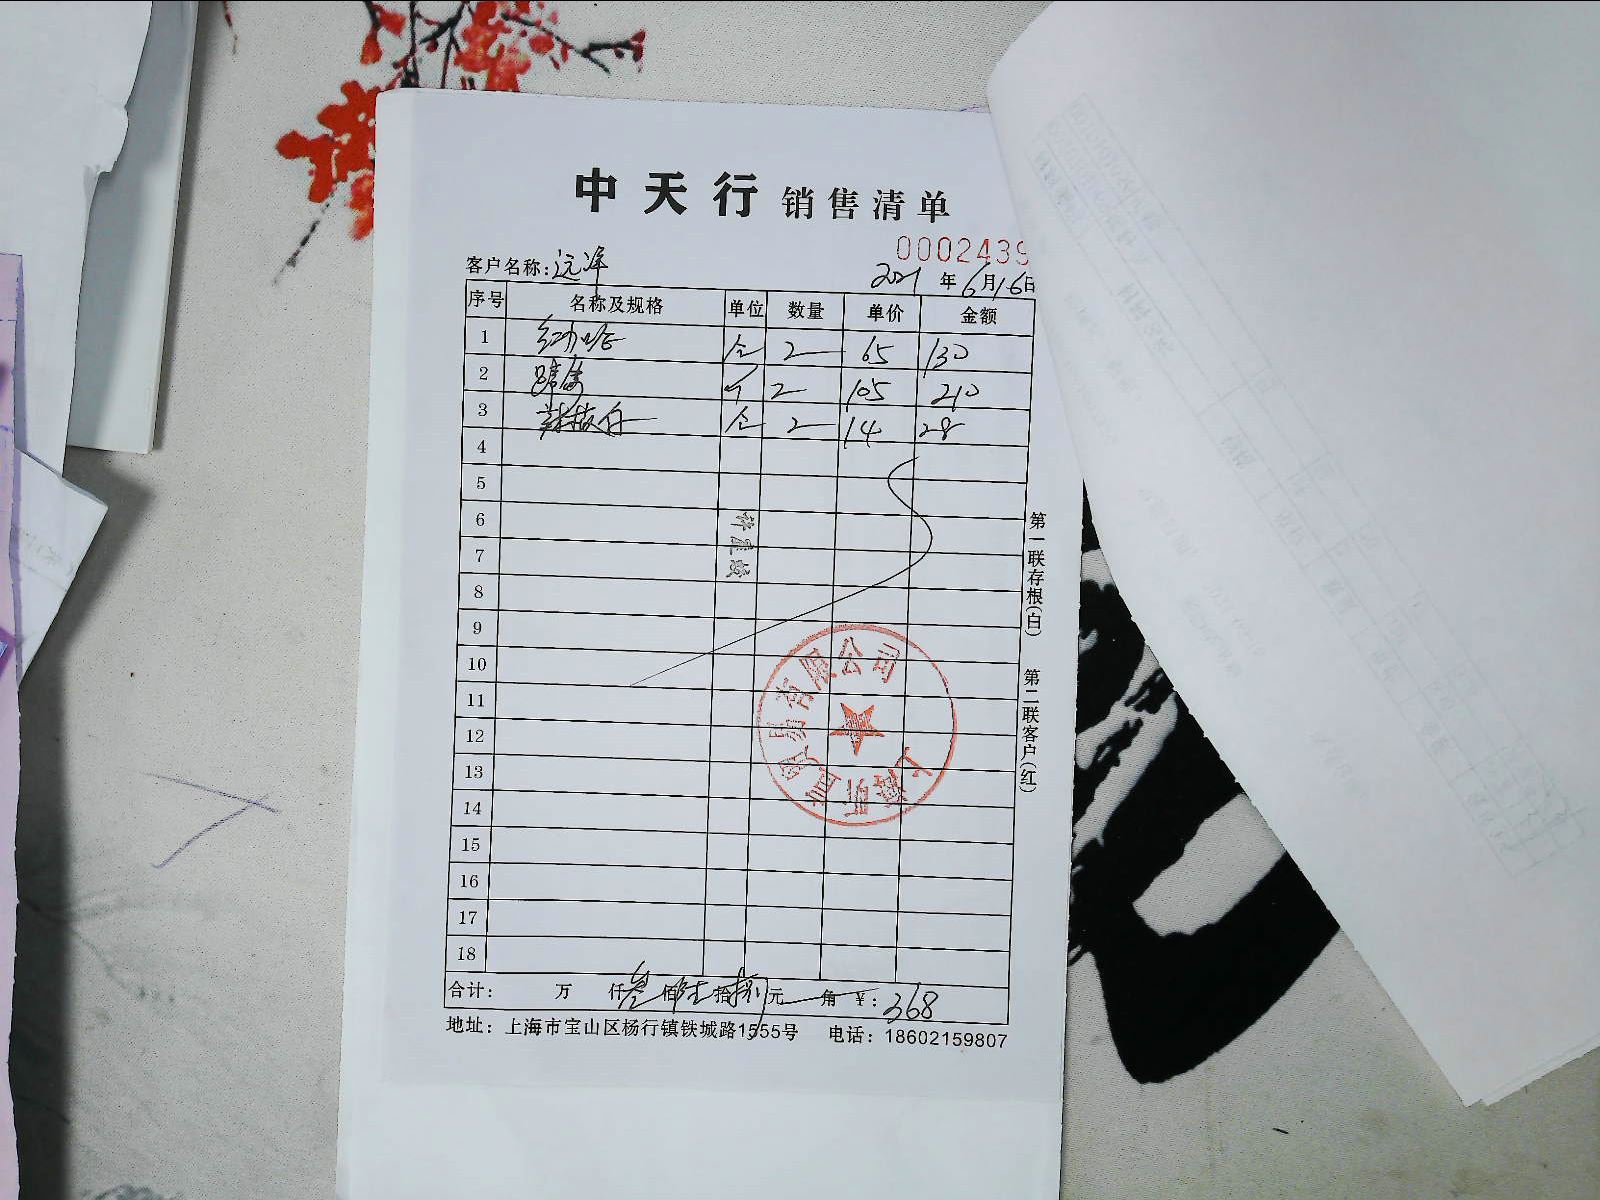 中天行 销售清单
0002439
客户名称:远洋
2021年6月16日
序号 名称及规格 单位 数量 单价 金额
1 2 65 130
2 个 2 105 210
3 2 14 28
4
5
6
7
8
9
10
11
12
13
14
15
16
17
18
合计: 万 仟叁佰陆拾捌元 角 ¥:368
地址:上海市宝山区杨行镇铁城路1555号 电话:18602159807
第一联存根(白) 第二联客户(红)
贸易有限公司